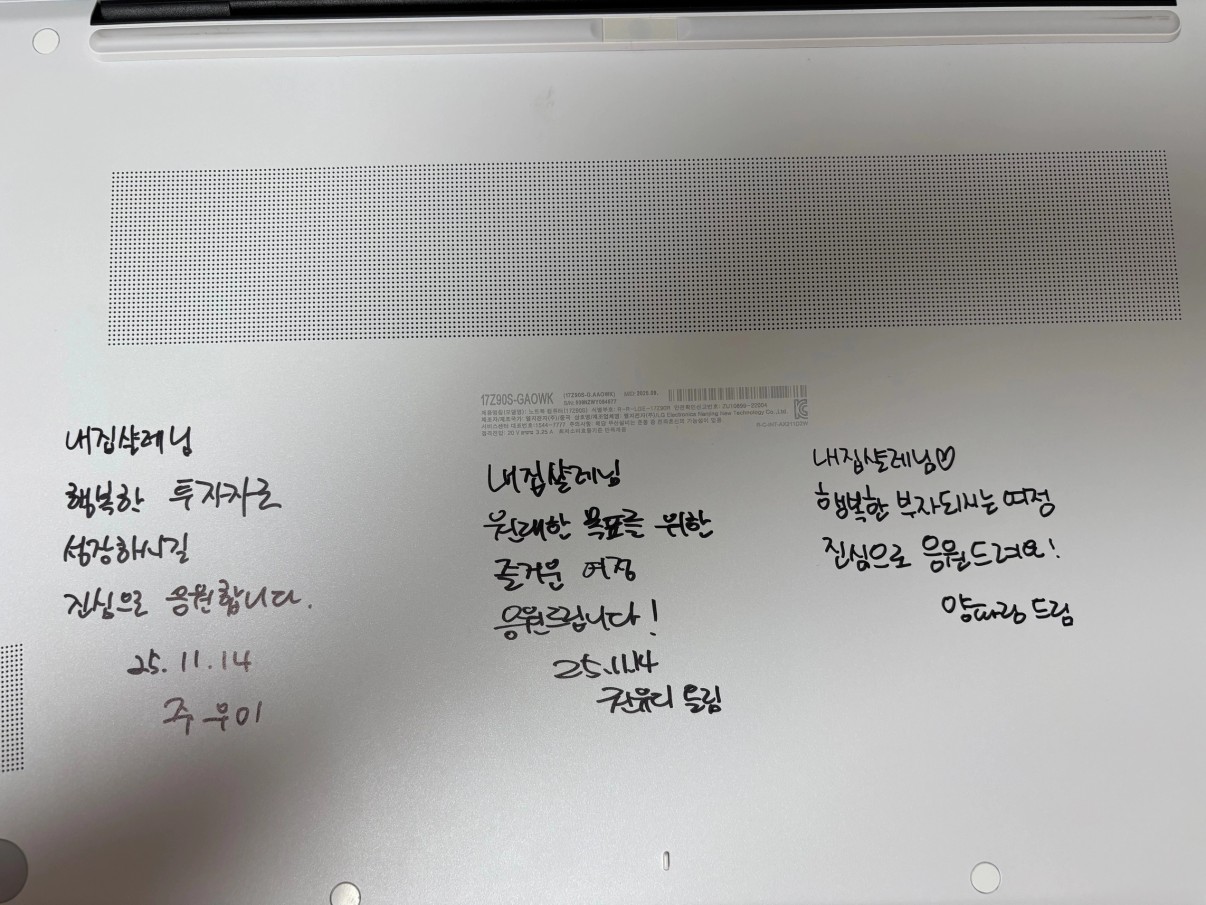 17Z90S-GAOWK
내집샬레님
행복한 투자자로
성장하시길
진심으로 응원합니다.
25.11.14
주우이
내집샬레님
원대한 목표를 위한
즐거운 여정
응원드립니다!
25.11.14
권유디 드림
내집샬레님♡
행복한 부자되시는 여정
진심으로 응원드려요!
양파링 드림